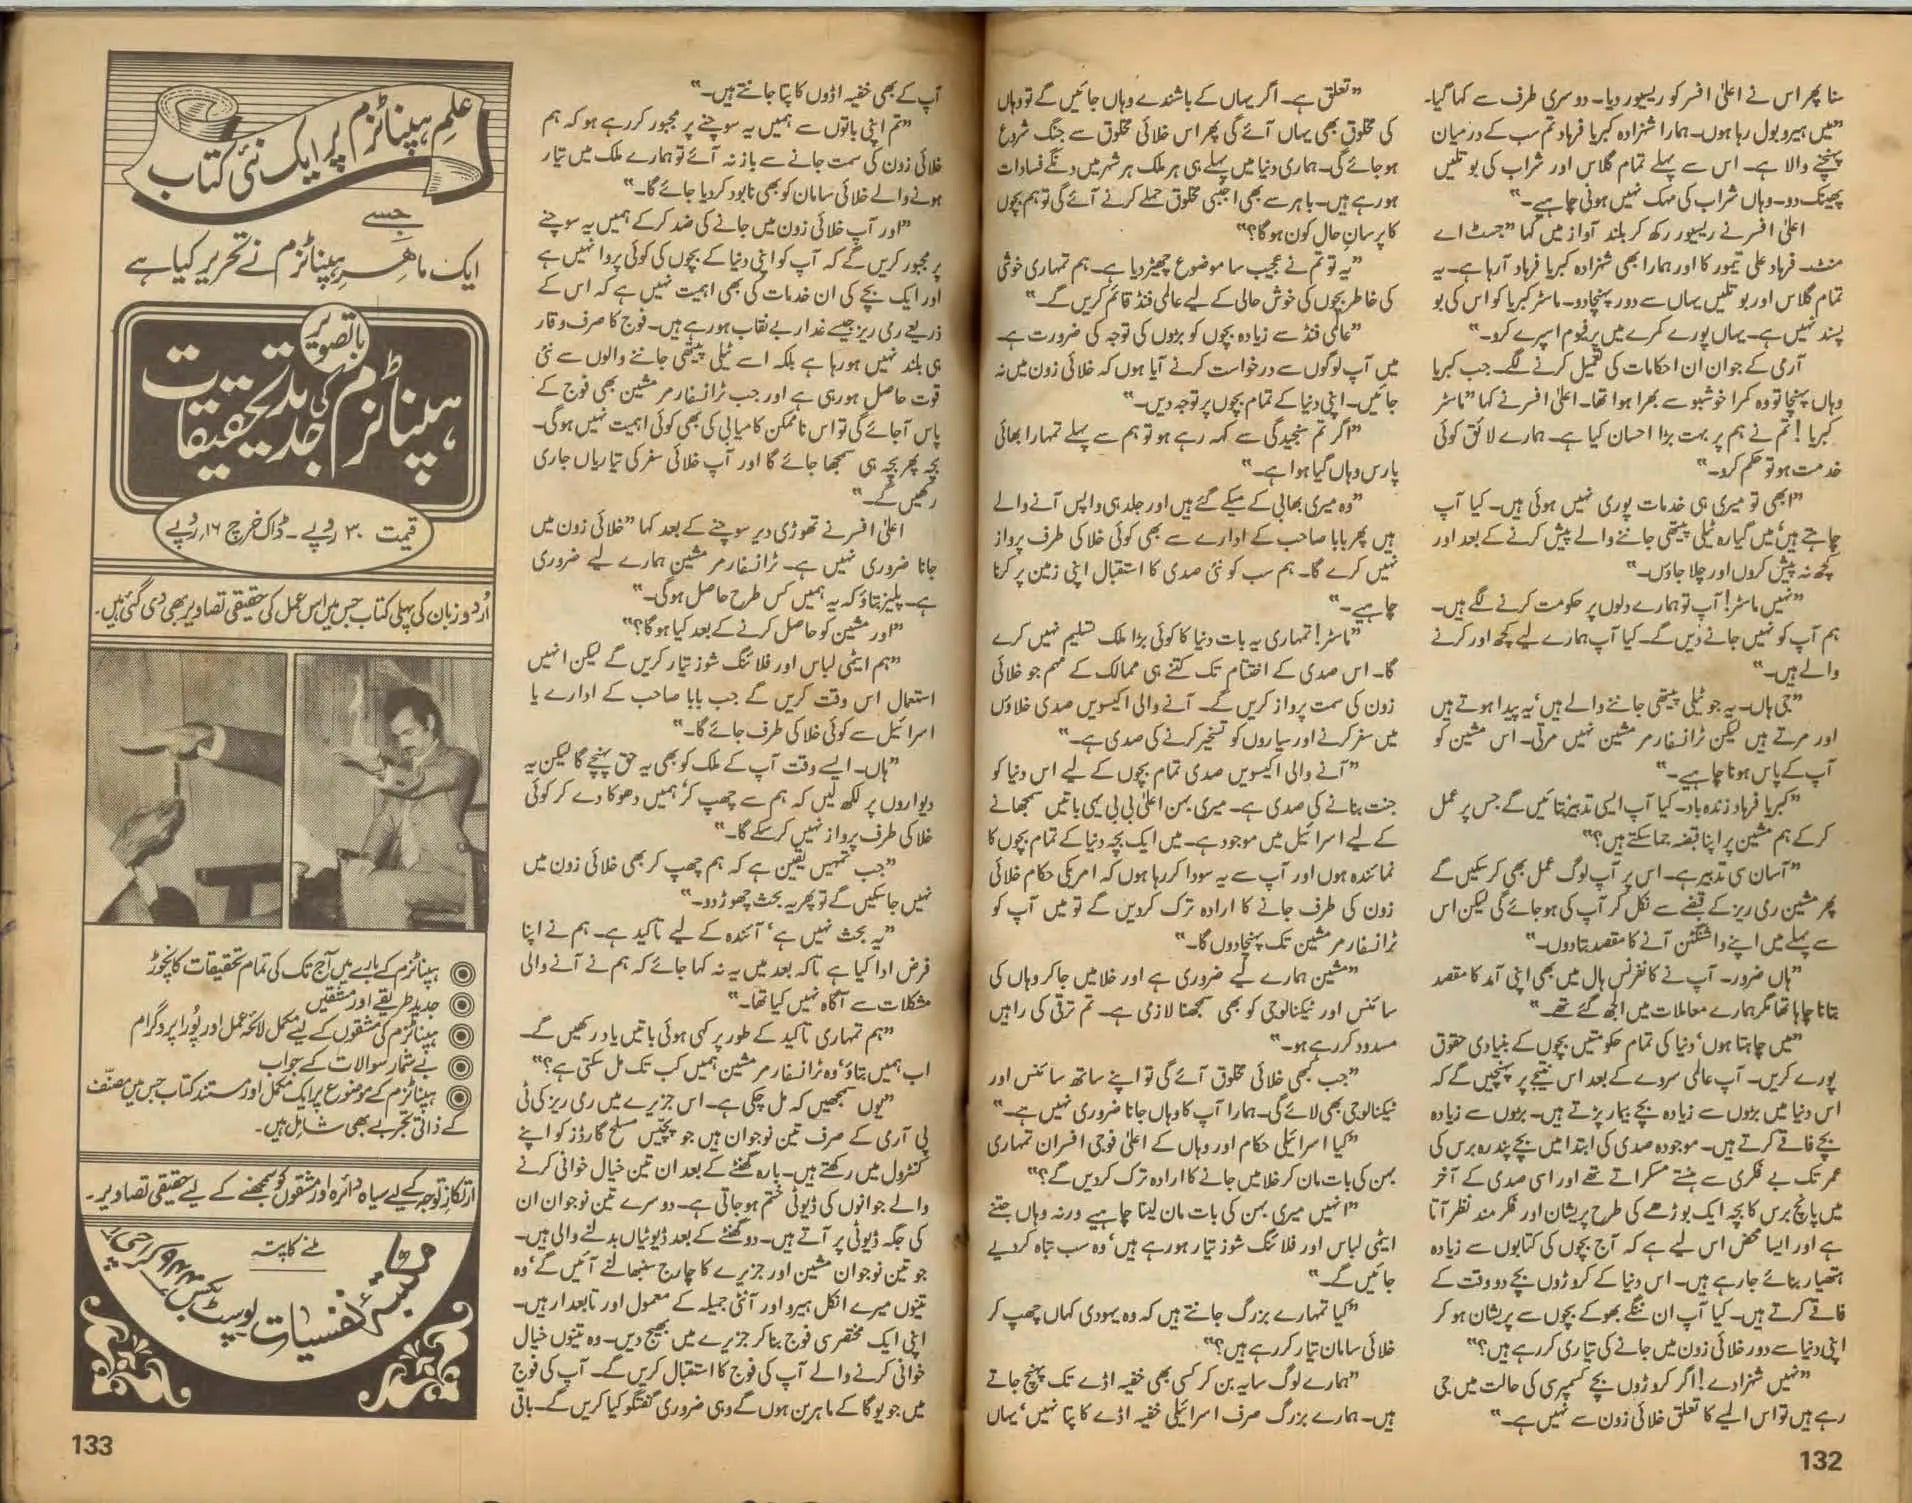 سنا پھر اس نے اعلیٰ افسر کو ریسیور دیا۔ دوسری طرف سے کہا گیا۔
”میں ہیرو بول رہا ہوں۔ ہمارا شہزادہ کبریا فرہاد تم سب کے درمیان
پہنچنے والا ہے۔ اس سے پہلے تمام گلاس اور شراب کی بوتلیں
پھینک دو۔ وہاں شراب کی مہک نہیں ہونی چاہیے۔“
اعلیٰ افسر نے ریسیور رکھ کر بلند آواز میں کہا ”جسٹ اے
منٹ۔ فرہاد علی تیمور کا اور ہمارا بھی شہزادہ کبریا فرہاد آرہا ہے۔ یہ
تمام گلاس اور بوتلیں یہاں سے دور پہنچادو۔ ماسٹر کبریا کو اس کی بو
پسند نہیں ہے۔ یہاں پورے کمرے میں پرفیوم اسپرے کرو۔“
آرمی کے جوان ان احکامات کی تعمیل کرنے لگے۔ جب کبریا
وہاں پہنچا تو وہ کمرا خوشبو سے بھرا ہوا تھا۔ اعلیٰ افسر نے کہا ”ماسٹر
کبریا! تم نے ہم پر بہت بڑا احسان کیا ہے۔ ہمارے لائق کوئی
خدمت ہو تو حکم کرو۔“
”ابھی تو میری ہی خدمات پوری نہیں ہوئی ہیں۔ کیا آپ
چاہتے ہیں‘ میں گیارہ ٹیلی پیتھی جاننے والے پیش کرنے کے بعد اور
کچھ نہ پیش کروں اور چلا جاؤں۔“
”نہیں ماسٹر! آپ تو ہمارے دلوں پر حکومت کرنے لگے ہیں۔
ہم آپ کو نہیں جانے دیں گے۔ کیا آپ ہمارے لیے کچھ اور کرنے
والے ہیں۔“
”جی ہاں۔ یہ جو ٹیلی پیتھی جاننے والے ہیں‘ یہ پیدا ہوتے ہیں
اور مرتے ہیں لیکن ٹرانسفارمر مشین نہیں مرتی۔ اس مشین کو
آپ کے پاس ہونا چاہیے۔“
”کبریا فرہاد زندہ باد۔ کیا آپ ایسی تدبیر بتائیں گے جس پر عمل
کرکے ہم مشین پر اپنا قبضہ جما سکتے ہیں؟“
”آسان سی تدبیر ہے۔ اس پر آپ لوگ عمل بھی کرسکیں گے
پھر مشین رمی ریز کے قبضے سے نکل کر آپ کی ہوجائے گی لیکن اس
سے پہلے میں اپنے واشنگٹن آنے کا مقصد بتادوں۔“
”ہاں ضرور۔ آپ نے کانفرنس ہال میں بھی اپنی آمد کا مقصد
بتانا چاہا تھا مگر ہمارے معاملات میں الجھ گئے تھے۔“
”میں چاہتا ہوں‘ دنیا کی تمام حکومتیں بچوں کے بنیادی حقوق
پورے کریں۔ آپ عالمی سروے کے بعد اس نتیجے پر پہنچیں گے کہ
اس دنیا میں بڑوں سے زیادہ بچے بیمار پڑتے ہیں۔ بڑوں سے زیادہ
بچے فاقے کرتے ہیں۔ موجودہ صدی کی ابتدا میں بچے پندرہ برس کی
عمر تک بے فکری سے ہنستے مسکراتے تھے اور اسی صدی کے آخر
میں پانچ برس کا بچہ ایک بوڑھے کی طرح پریشان اور فکر مند نظر آتا
ہے اور ایسا محض اس لیے ہے کہ آج بچوں کی کتابوں سے زیادہ
ہتھیار بنائے جارہے ہیں۔ اس دنیا کے کروڑوں بچے دو وقت کے
فاقے کرتے ہیں۔ کیا آپ ان ننگے بھوکے بچوں سے پریشان ہوکر
اپنی دنیا سے دور خلائی زون میں جانے کی تیاری کررہے ہیں؟“
”نہیں شہزادے! اگر کروڑوں بچے کسمپرسی کی حالت میں جی
رہے ہیں تو اس المیے کا تعلق خلائی زون سے نہیں ہے۔“
”تعلق ہے۔ اگر یہاں کے باشندے وہاں جائیں گے تو وہاں
کی مخلوق بھی یہاں آئے گی پھر اس خلائی مخلوق سے جنگ شروع
ہوجائے گی۔ ہماری دنیا میں پہلے ہی ہر ملک ہر شہر میں دنگے فسادات
ہورہے ہیں۔ باہر سے بھی اجنبی مخلوق حملے کرنے آئے گی تو ہم بچوں
کا پرسان حال کون ہوگا؟“
”یہ تو تم نے عجیب سا موضوع چھیڑ دیا ہے۔ ہم تمہاری خوشی
کی خاطر بچوں کی خوش حالی کے لیے عالمی فنڈ قائم کریں گے۔“
”عالمی فنڈ سے زیادہ بچوں کو بڑوں کی توجہ کی ضرورت ہے۔
میں آپ لوگوں سے درخواست کرنے آیا ہوں کہ خلائی زون میں نہ
جائیں۔ اپنی دنیا کے تمام بچوں پر توجہ دیں۔“
”اگر تم سنجیدگی سے کہہ رہے ہو تو ہم سے پہلے تمہارا بھائی
پارس وہاں گیا ہوا ہے۔“
”وہ میری بھابی کے میکے گئے ہیں اور جلد ہی واپس آنے والے
ہیں پھر بابا صاحب کے ادارے سے بھی کوئی خلا کی طرف پرواز
نہیں کرے گا۔ ہم سب کو نئی صدی کا استقبال اپنی زمین پر کرنا
چاہیے۔“
”ماسٹر! تمہاری یہ بات دنیا کا کوئی بڑا ملک تسلیم نہیں کرے
گا۔ اس صدی کے اختتام تک کتنے ہی ممالک کے مہم جو خلائی
زون کی سمت پرواز کریں گے۔ آنے والی اکیسویں صدی خلاؤں
میں سفر کرنے اور سیاروں کو تسخیر کرنے کی صدی ہے۔“
”آنے والی اکیسویں صدی تمام بچوں کے لیے اس دنیا کو
جنت بنانے کی صدی ہے۔ میری بہن اعلیٰ بی بی یہی باتیں سمجھانے
کے لیے اسرائیل میں موجود ہے۔ میں ایک بچہ دنیا کے تمام بچوں کا
نمائندہ ہوں اور آپ سے یہ سودا کررہا ہوں کہ امریکی حکام خلائی
زون کی طرف جانے کا ارادہ ترک کردیں گے تو میں آپ کو
ٹرانسفارمر مشین تک پہنچادوں گا۔“
”مشین ہمارے لیے ضروری ہے اور خلا میں جاکر وہاں کی
سائنس اور ٹیکنالوجی کو بھی سمجھنا لازمی ہے۔ تم ترقی کی راہیں
مسدود کررہے ہو۔“
”جب کبھی خلائی مخلوق آئے گی تو اپنے ساتھ سائنس اور
ٹیکنالوجی بھی لائے گی۔ ہمارا آپ کا وہاں جانا ضروری نہیں ہے۔“
”کیا اسرائیلی حکام اور وہاں کے اعلیٰ فوجی افسران تمہاری
بہن کی بات مان کر خلا میں جانے کا ارادہ ترک کردیں گے؟“
”انہیں میری بہن کی بات مان لینا چاہیے ورنہ وہاں جتنے
ایٹمی لباس اور فلائنگ شوز تیار ہورہے ہیں‘ وہ سب تباہ کردیے
جائیں گے۔“
”کیا تمہارے بزرگ جانتے ہیں کہ وہ یہودی کہاں چھپ کر
خلائی سامان تیار کررہے ہیں؟“
”ہمارے لوگ سایہ بن کر کسی بھی خفیہ اڈے تک پہنچ جاتے
ہیں۔ ہمارے بزرگ صرف اسرائیلی خفیہ اڈے کا پتا نہیں‘ یہاں
132
آپ کے بھی خفیہ اڈوں کا پتا جانتے ہیں۔“
”تم اپنی باتوں سے ہمیں یہ سوچنے پر مجبور کررہے ہو کہ ہم
خلائی زون کی سمت جانے سے باز نہ آئے تو ہمارے ملک میں تیار
ہونے والے خلائی سامان کو بھی نابود کردیا جائے گا۔“
”اور آپ خلائی زون میں جانے کی ضد کرکے ہمیں یہ سوچنے
پر مجبور کریں گے کہ آپ کو اپنی دنیا کے بچوں کی کوئی پروا نہیں ہے
اور ایک بچے کی ان خدمات کی بھی اہمیت نہیں ہے کہ اس کے
ذریعے رمی ریز جیسے غدار بے نقاب ہورہے ہیں۔ فوج کا صرف وقار
ہی بلند نہیں ہورہا ہے بلکہ اسے ٹیلی پیتھی جاننے والوں سے نئی
قوت حاصل ہورہی ہے اور جب ٹرانسفارمر مشین بھی فوج کے
پاس آجائے گی تو اس ناممکن کامیابی کی بھی کوئی اہمیت نہیں ہوگی۔
بچہ پھر بچہ ہی سمجھا جائے گا اور آپ خلائی سفر کی تیاریاں جاری
رکھیں گے۔“
اعلیٰ افسر نے تھوڑی دیر سوچنے کے بعد کہا ”خلائی زون میں
جانا ضروری نہیں ہے۔ ٹرانسفارمر مشین ہمارے لیے ضروری
ہے۔ پلیز بتاؤ کہ یہ ہمیں کس طرح حاصل ہوگی۔“
”اور مشین کو حاصل کرنے کے بعد کیا ہوگا؟“
”ہم ایٹمی لباس اور فلائنگ شوز تیار کریں گے لیکن انہیں
استعمال اس وقت کریں گے جب بابا صاحب کے ادارے یا
اسرائیل سے کوئی خلا کی طرف جائے گا۔“
”ہاں۔ ایسے وقت آپ کے ملک کو بھی یہ حق پہنچے گا لیکن یہ
دیواروں پر لکھ لیں کہ ہم سے چھپ کر‘ ہمیں دھوکا دے کر کوئی
خلا کی طرف پرواز نہیں کرسکے گا۔“
”جب تمہیں یقین ہے کہ ہم چھپ کر بھی خلائی زون میں
نہیں جاسکیں گے تو پھر یہ بحث چھوڑ دو۔“
”یہ بحث نہیں ہے‘ آئندہ کے لیے تاکید ہے۔ ہم نے اپنا
فرض ادا کیا ہے تاکہ بعد میں یہ نہ کہا جائے کہ ہم نے آنے والی
مشکلات سے آگاہ نہیں کیا تھا۔“
”ہم تمہاری تاکید کے طور پر کہی ہوئی باتیں یاد رکھیں گے۔
اب ہمیں بتاؤ‘ وہ ٹرانسفارمر مشین ہمیں کب تک مل سکتی ہے؟“
”یوں سمجھیں کہ مل چکی ہے۔ اس جزیرے میں رمی ریز کی ٹی
پی آری کے صرف تین نوجوان ہیں جو پچیس مسلح گارڈز کو اپنے
کنٹرول میں رکھتے ہیں۔ بارہ گھنٹے کے بعد ان تین خیال خوانی کرنے
والے جوانوں کی ڈیوٹی ختم ہوجاتی ہے۔ دوسرے تین نوجوان ان
کی جگہ ڈیوٹی پر آتے ہیں۔ دو گھنٹے کے بعد ڈیوٹیاں بدلنے والی ہیں۔
جو تین نوجوان مشین اور جزیرے کا چارج سنبھالنے آئیں گے‘ وہ
تینوں میرے انکل ہیرو اور آنٹی جمیلہ کے معمول اور تابعدار ہیں۔
اپنی ایک مختصر سی فوج بناکر جزیرے میں بھیج دیں۔ وہ تینوں خیال
خوانی کرنے والے آپ کی فوج کا استقبال کریں گے۔ آپ کی فوج
میں جو یوگا کے ماہرین ہوں گے وہی ضروری گفتگو کیا کریں گے۔ باقی
علمِ ہپناٹزم پر ایک نئی کتاب
جسے
ایک ماہرِ ہپناٹزم نے تحریر کیا ہے
باتصویر
ہپناٹزم کی جدید تحقیقات
قیمت ۳۰ روپے۔ ڈاک خرچ ۱۶ روپے
اُردو زبان کی پہلی کتاب جس میں اس عمل کی حقیقی تصاویر بھی دی گئی ہیں۔
ہپناٹزم کے بارے میں آج تک کی تمام تحقیقات کا نچوڑ
جدید طریقے اور مشقیں
ہپناٹزم کی مشقوں کے لیے مکمل لائحہ عمل اور پورا پروگرام
بے شمار سوالات کے جواب
ہپناٹزم کے موضوع پر ایک مکمل اور مستند کتاب جس میں مصنّف
کے ذاتی تجربے بھی شامل ہیں۔
ارتکازِ توجہ کے لیے سیاہ دائرہ اور مشقوں کو سمجھنے کے لیے حقیقی تصاویر۔
ملنے کا پتہ
مکتبہ نفسیات پوسٹ بکس ۹۴۴ کراچی ۱
133